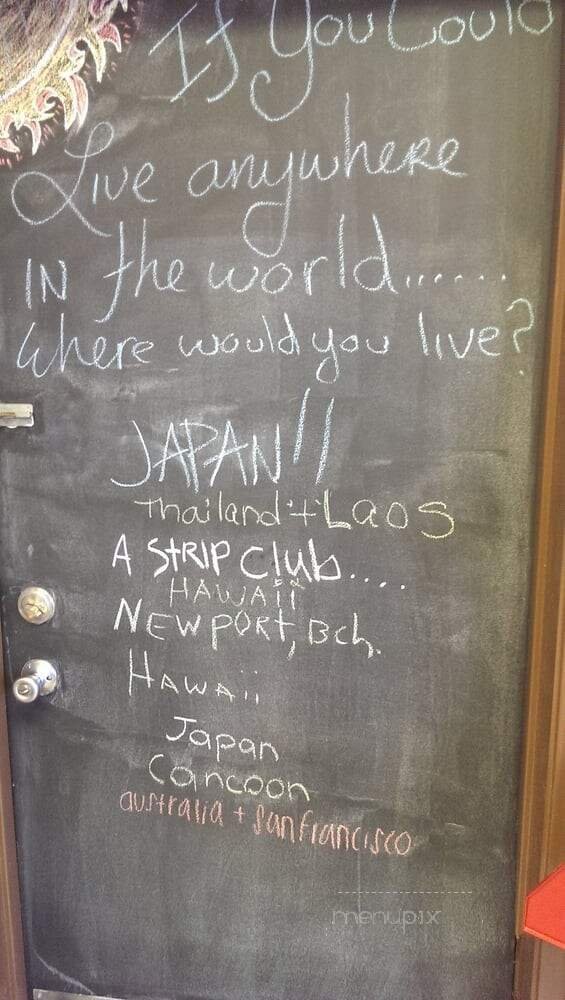 If You Could
Live anywhere
IN the world.......
where would you live?
JAPAN!!
thailand + Laos
A STRIP Club....
HAWAii
NEWPORT, Bch.
HAWAii
Japan
Cancoon
australia + sanfrancisco
menupix